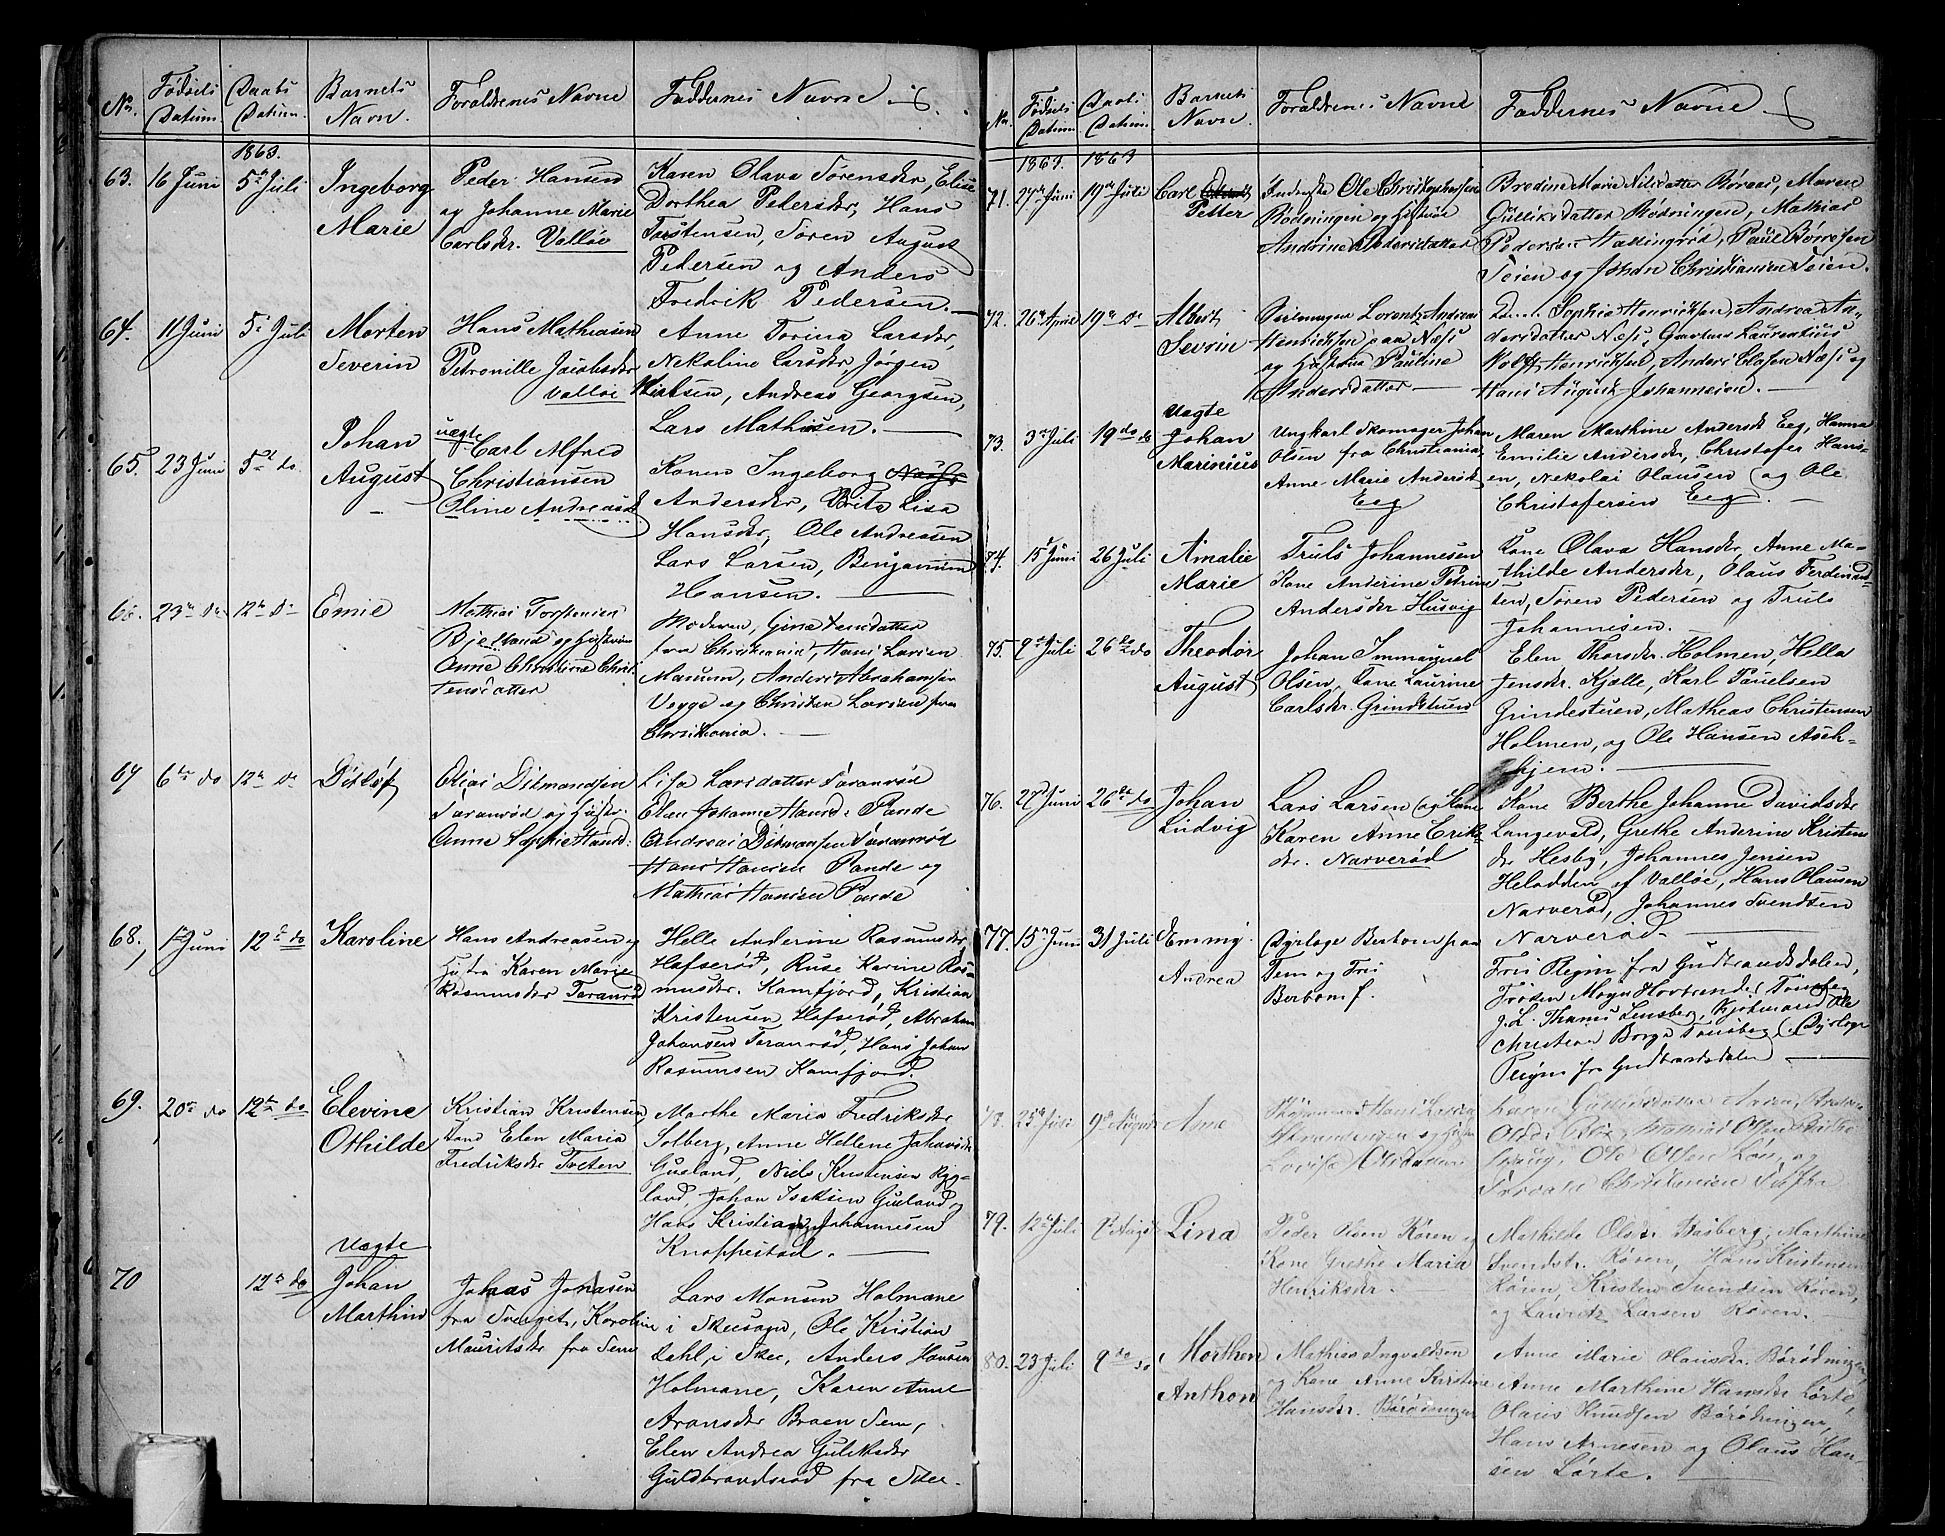 No. Fødsels Datum Daabs Datum. Barnets Navn. Forældrenes Navne Faddernes Navne
1863.
63. 16 Juni 5te Juli Ingeborg Marie
Peder Hansen
og Johanne Marie
Carlsdr. Valløe
Karen Olava Sørensdr, Elise
Dorthea Pedersdr, Hans
Torstensen, Søren August
Pedersen og Anders
Fredrik Pedersen.
64. 11 Juni 5te Juli Morten Severin
Hans Mathiasen
Petronille Jacobsdr
Valløe
Anne Torina Larsdr,
Nekoline Larsdr, Jørgen
Mathisen, Andreas Georgsen,
Lars Mathisen.
65. 23 Juni 5te do Johan August
uægte
Carl Alfred
Christiansen
Oline Andreasdr
Konen Ingeborg
Andersdr, Brita Lisa
Hansdr, Ole Andreasen
Lars Larsen, Benjamin
Hansen.
66. 23de do 12te do Emil
Mathias Torstensen
Bjelland og Hustru
Anne Christine Chris-
tensdatter
Moderen, Gine Jensdatter
fra Christiania, Hans Larsen
Manum, Anders Abrahamsen
Vegge og Christen Larsen fra
Christiania.
67 6te do 12te do Ditløf
Olias Ditmandsen
Taranrød og Hustr.
Anne Sophie Hansd.
Lisa Larsdatter Taranrød
Elen Johanne Hansd. Pande
Andreas Ditmansen Taranrød
Hans Hansen Pande og
Mathias Hansen Pande
68. 1ste Juni 12te do Karoline
Hans Andreasen og
Hustru Karen Marie
Rasmusdr Taranrød
Helle Anderine Rasmusdr
Hafserød, Karine Ras-
musdr. Kamfjord, Kristian
Kristensen Hafserød, Abraham
Johansen Taranrød, Hans Johan
Rasmusen Kamfjord.
69. 20de do 12te do Elevine Othilde
Kristian Kristensen
Elen Maria
Fredriksdr Toeten
Marthe Maria Fredriksdr
Solberg, Anne Hellene
Gusland, Niels Kristensen Ryg-
land, Johan Isaksen Gusland og
Hans Kristian Johannesen
Knappestad.
70 12te do
Uægte
Johan Marthin
Johan Jonasen
fra Sverget, Karoline
Mauritsdr fra Sem
Lars Monsen Holmane
i Skeesogn, Ole Kristian
Dahl i Skee, Anders Hansen
Holmane, Karen Anne
Aronsdr Braen Sem,
Elen Andrea Guliksdr
Guldbrandsrød fra Skee.
No. Fødsels Datum Daabs Datum. Barnets Navn. Forældrenes Navne Faddernes Navne
1863. 1863
71. 27de Juni 19de Juli Carl Petter
Inderste Ole Christophersen
Rødningen og Hustru
Andrine Pedersdatter
Brodine Marie Nilsdatter Børaas, Maren
Gulliksdatter Rødningen, Mathias
Pedersen, Paul Børresen
Teien og Johan Christiansen Teien.
72. 26de April 19de do Albert Sevrin
Lorentz Andreas
Henrichsen paa Næs
og Hustru Pauline
Andersdatter
Sophie Henrichsen, Andrea An-
dersdatter Næs, Gustav Laurentius
Wolff Henrichsen, Anders Olafsen Næs og
Hans August Johannesen.
73. 3die Juli 19de do
Uægte
Johan Marinius
Ungkarl Skomager Johan
Olsen fra Christiania,
Anne Marie Andersd.
Eeg
Maren Marthine Andersdr Eeg, Hanna
Emilie Andersdr, Christofer Hans-
en, Nekolai Olausen og Ole
Christofersen Eeg.
74. 15 Juni 26 Juli Amalie Marie
Truls Johannesen
Kone Anderine Petrine
Andersdr Husvig
Kone Olava Hansdr, Anne Ma-
thilde Andersdr, Olaus Ferdinand-
sen, Søren Pedersen og Truls
Johannesen.
75. 9de Juli 26de do Theodor August
Johan Immanuel
Olsen, Kone Laurine
Carlsdr. Grindstuen
Elen Thorsdr. Holmen, Hella
Jensdr. Kjælle, Karl Paulsen
Grindestuen, Mathias Christensen
Holmen, og Ole Hansen Ask-
hjem.
76. 27 Juni 26de do Johan Ludvig
Lars Larsen og Kone
Karen Anne Eriks-
dr. Narverød
Kone Berthe Johanne Davidsdr
Langevald, Grethe Anderine Kristens
dr Hesby, Johannes Jensen
Heladden af Valløe, Hans Olausen
Narverød, Johannes Svendsen
Narverød.
77. 15de Juni 31 Juli Emmy Andrea
Dyrlæge Berbom paa
Sem og Fris
Berbom f.
Fris Plejm fra Gudbrandsdalen,
Frøken
J. L. Thams
Christian Borge Tønsberg Dyrlæge
Plejm fr Gudbrandsdalen
78. 25de Juli 9de August Arne
Hans Larsen
og Hustru
Lovise Olsdatter
Ole Olsen
79. 12te Juli August Lina
Peder Olsen Røren og
Kone Grethe Maria
Henriksdr.
Mathilde Olsdr Basberg, Marthine
Svendsdr. Røren, Hans Kristensen
Røren, Kristen Svendsen Røren,
og Lauritz Larsen Røren.
80. 23 Juli 9de do Morthen Anthon
Mathias Ingvaldsen
og Kone Anne Kirstine
Hansdr. Børødningen
Anne Marie Hansdr. Børødningen
Anne Marthine Hansdr Lørte,
Olaus Knudsen Børødningen,
Hans Arnesen og Olaus Han-
sen Lørte.